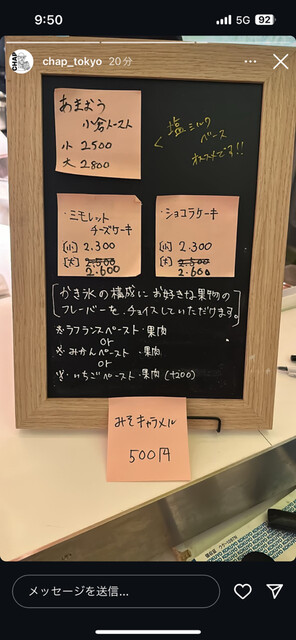 9:50
5G 92
chap_tokyo 20分
CHAP
あまおう
小倉トースト
小 2500
大 2800
< 塩ミルク
ベース
オススメです!!
・ミモレット
チーズケーキ
(小) 2.300
(大) 2.500
2.600
・ショコラケーキ
(小) 2.300
(大) 2.500
2.600
かき氷の構成にお好きな果物の
フレーバーを、チョイスしていただけます。
※ラフランスペースト・果肉
or
※みかんペースト・果肉
or
※・いちごペースト・果肉 (+200)
みそキャラメル
500円
メッセージを送信...